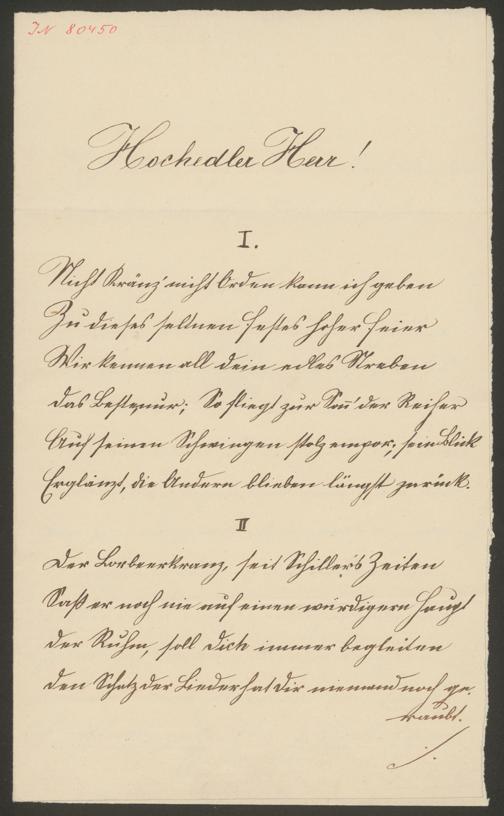 IN 80450
Hochedler Herr!
I.
Nicht Kränz' nicht Orden kann ich geben
Zu dieses seltnen Festes hoher Feier
Wir kennen all dein edles Streben
Das Beste nur; So fliegt zur Son̄' der Reiher
Auf seinen Schwingen stolz empor; sein Blick
Erglänzt, die Andern blieben längst zurück.
II
Der Lorbeerkranz, seit Schiller's Zeiten
Saß er noch nie auf einem würdigern Haupt
Der Ruhm, soll Dich immer begleiten
Den Schatz der Lieder hat dir niemand noch ge-
raubt.